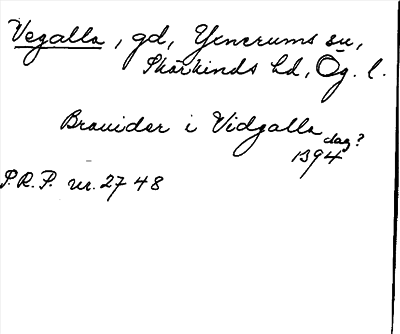 Vegalla, gd, Yxnerums sn,
Skärkinds hd, Ög. l.
Brouider i Vidgalla
dag?
1394
P.R.P. nr. 2748